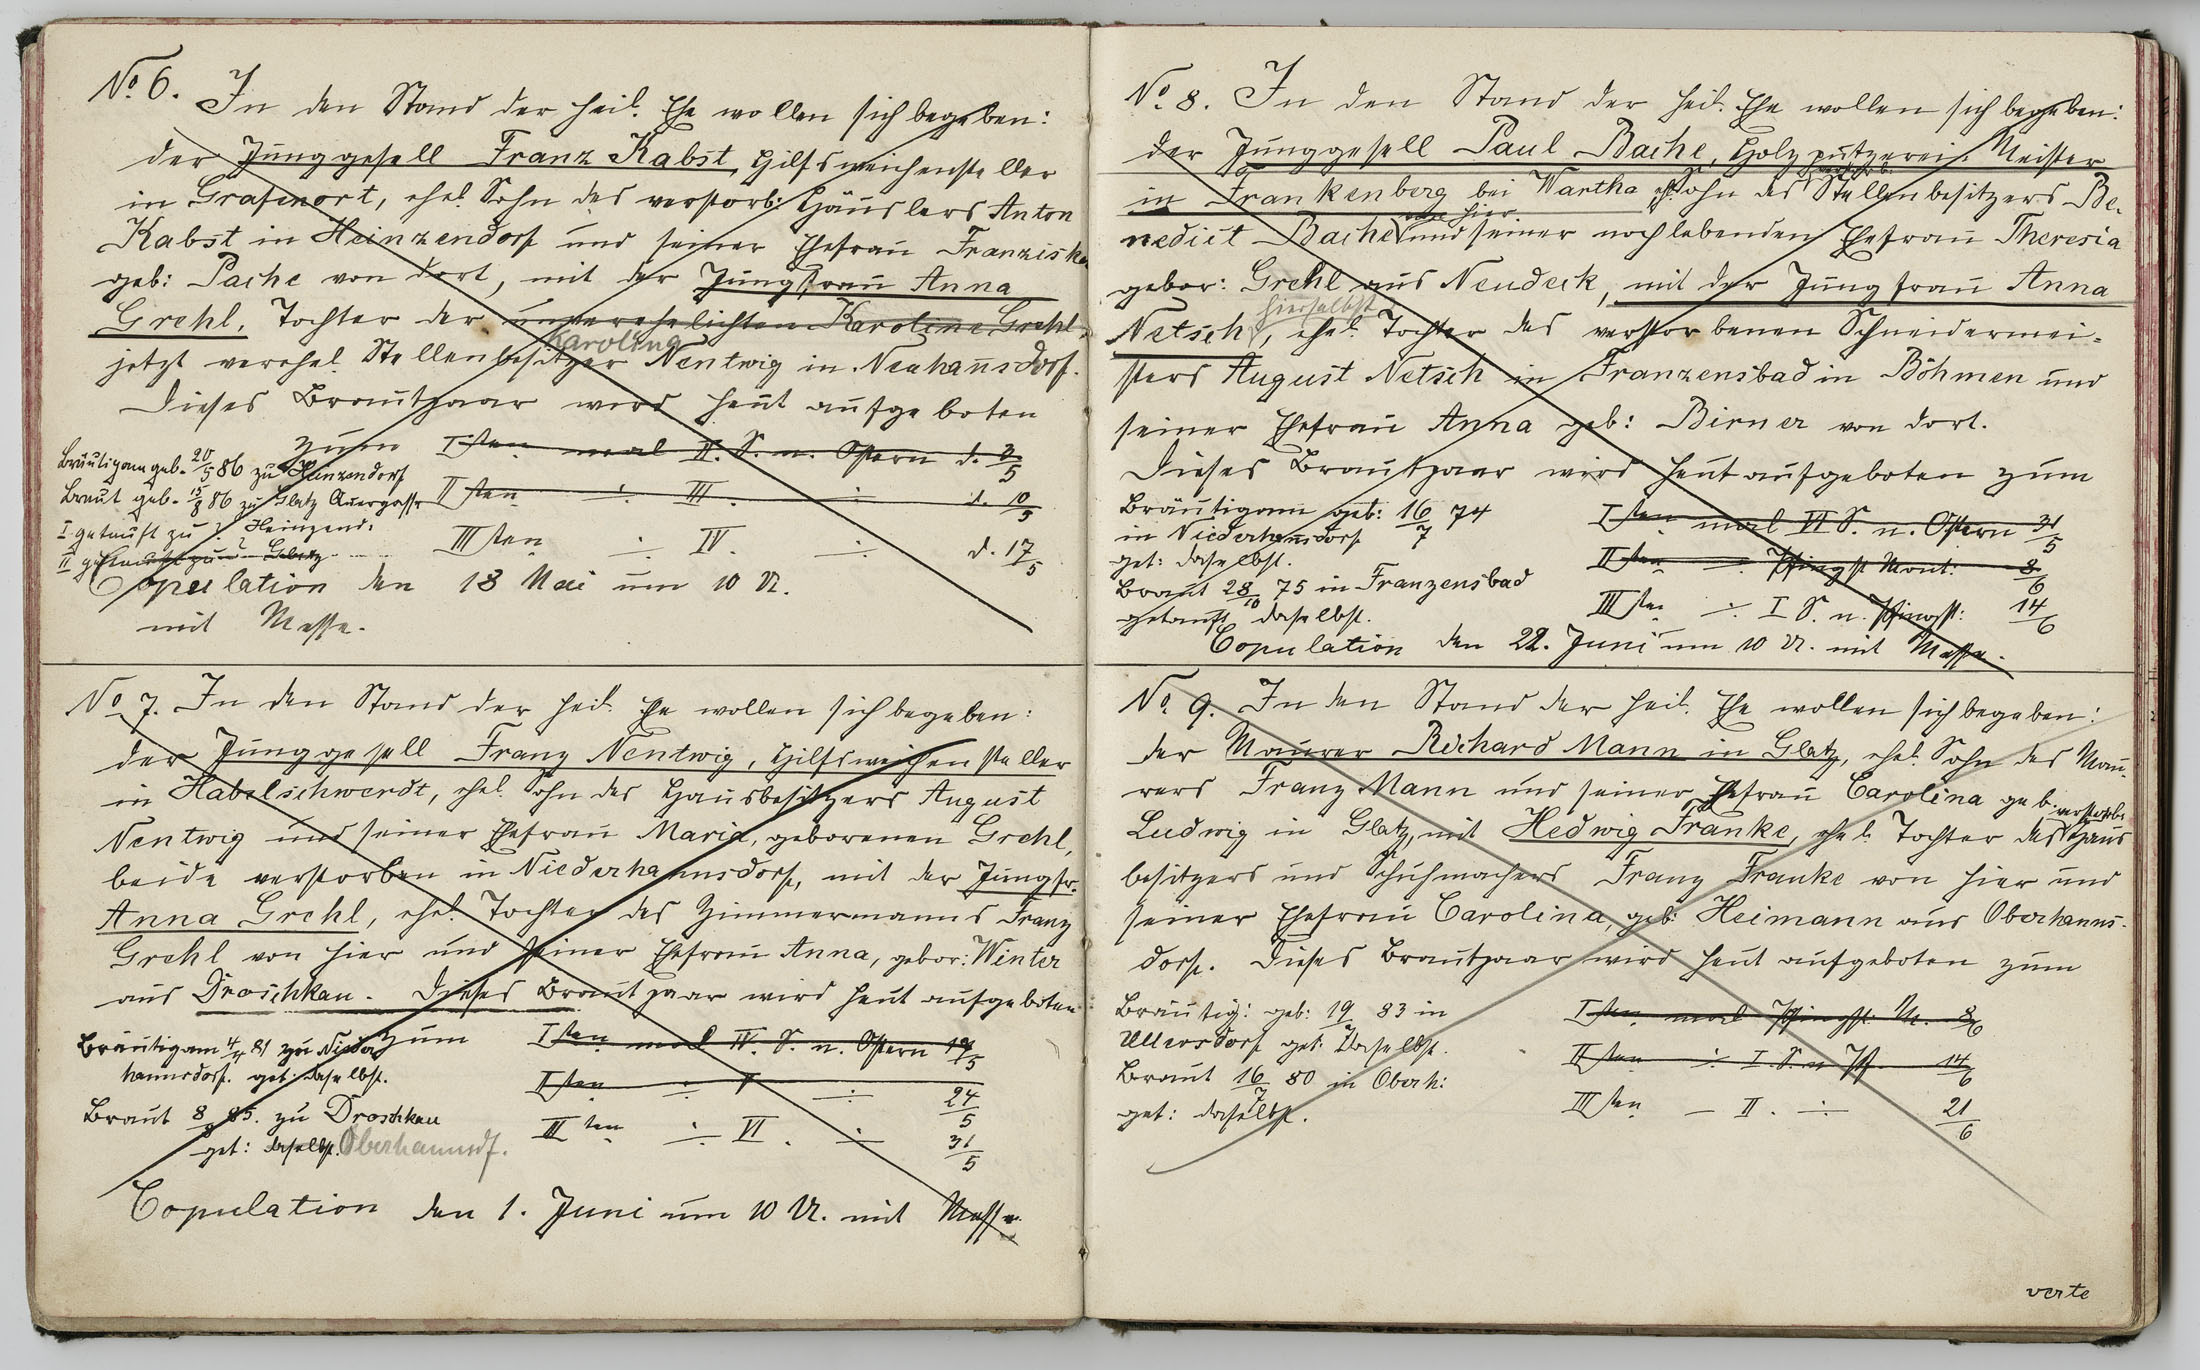 No. 6. In den Stand der heil. Ehe wollen sich begeben:
der Junggesell Franz Kabst, Hilfsweichensteller
in Grafenort, ehel. Sohn des verstorb: Häuslers Anton
Kabst in Heinzendorf und seiner Ehefrau Franziska
geb: Pache von dort, mit der Jungfrau Anna
Grehl, Tochter der unverehelichten Karoline Grehl,
Karoline
jetzt verehel. Stellenbesitzer Nentwig in Neuhannsdorf.
Dieses Brautpaar wird heut aufgeboten
zum Isten mal II. S. n. Ostern d. 3/5
Bräutigam geb. 20/5 86 zu Heinzendorf
Braut geb. 15/8 86 zu Glatz Quergasse
IIten ÷ III. ÷ d. 10/5
I getauft zu ? Heinzend.
IIIten ÷ IV. ÷ d. 17/5
II getauft zu ?
Copulation den 18 Mai um 10 U.
mit Messe.
No. 7. In den Stand der heil. Ehe wollen sich begeben:
der Junggesell Franz Nentwig, Hilfsweichensteller
in Habelschwerdt, ehel. Sohn des Hausbesitzers August
Nentwig und seiner Ehefrau Maria, geborenen Grehl,
beide verstorben in Niederhannsdorf, mit der Jungfr.
Anna Grehl, ehel. Tochter des Zimmermanns Franz
Grehl von hier und seiner Ehefrau Anna, gebor: Winter
aus Droschkau. Dieses Brautpaar wird heut aufgeboten
zum Isten mal IV. S. n. Ostern 17/5
Bräutigam 4/4 81 zu Nieder
hannsdorf. get: daselbst.
IIten ÷ V ÷ 24/5
Braut 8/8 85. zu Droschkau
IIIten ÷ VI. ÷ 31/5
get: daselbst. Oberhannsdf.
Copulation den 1. Juni um 10 U. mit Messe.
No. 8. In den Stand der heil. Ehe wollen sich begeben:
der Junggesell Paul Bache, Holzputzerei. Meister
verstorb.
in Frankenberg bei Wartha ehel. Sohn des Stellenbesitzers Be-
von hier
nedict Bache und seiner noch lebenden Ehefrau Theresia
gebor: Grehl aus Neudeck, mit der Jungfrau Anna
hierselbst
Netsch, ehel. Tochter des verstorbenen Schneidermei-
sters August Netsch in Franzensbad in Böhmen und
seiner Ehefrau Anna geb: Birner von dort.
Dieses Brautpaar wird heut aufgeboten zum
Bräutigam geb: 16/7 74
Isten mal VI S. n. Ostern 31/5
in Niederhannsdorf
get: daselbst.
IIten ÷ Pfingst Mont: 8/6
Braut 28/10 75 in Franzensbad
IIIten ÷ I S. n. Pfingst: 14/6
getauft daselbst.
Copulation den 22. Juni um 10 U. mit Messe.
No. 9. In den Stand der heil. Ehe wollen sich begeben:
der Maurer Richard Mann in Glatz, ehel. Sohn des Mau-
rers Franz Mann und seiner Ehefrau Carolina geb.
verstorb.
Ludwig in Glatz, mit Hedwig Franke, ehel. Tochter des Haus
besitzers und Schuhmachers Franz Franke von hier und
seiner Ehefrau Carolina, geb: Heimann aus Oberhanns-
dorf. Dieses Brautpaar wird heut aufgeboten zum
Bräutig: geb: 19/7 83 in
Isten mal Pfingst M. 8/6
Ullersdorf get: daselbst.
IIten ÷ I S. n. Pf. 14/6
Braut 16/7 80 in Oberh:
IIIten – II. ÷ 21/6
get: daselbst.
verte